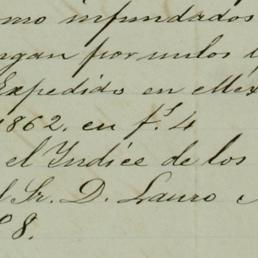 omo infundados
ngan por unos
Expedido en Mex
1862. en fs. 4
el Yndice de los
l Sr. D. Lauro
8.